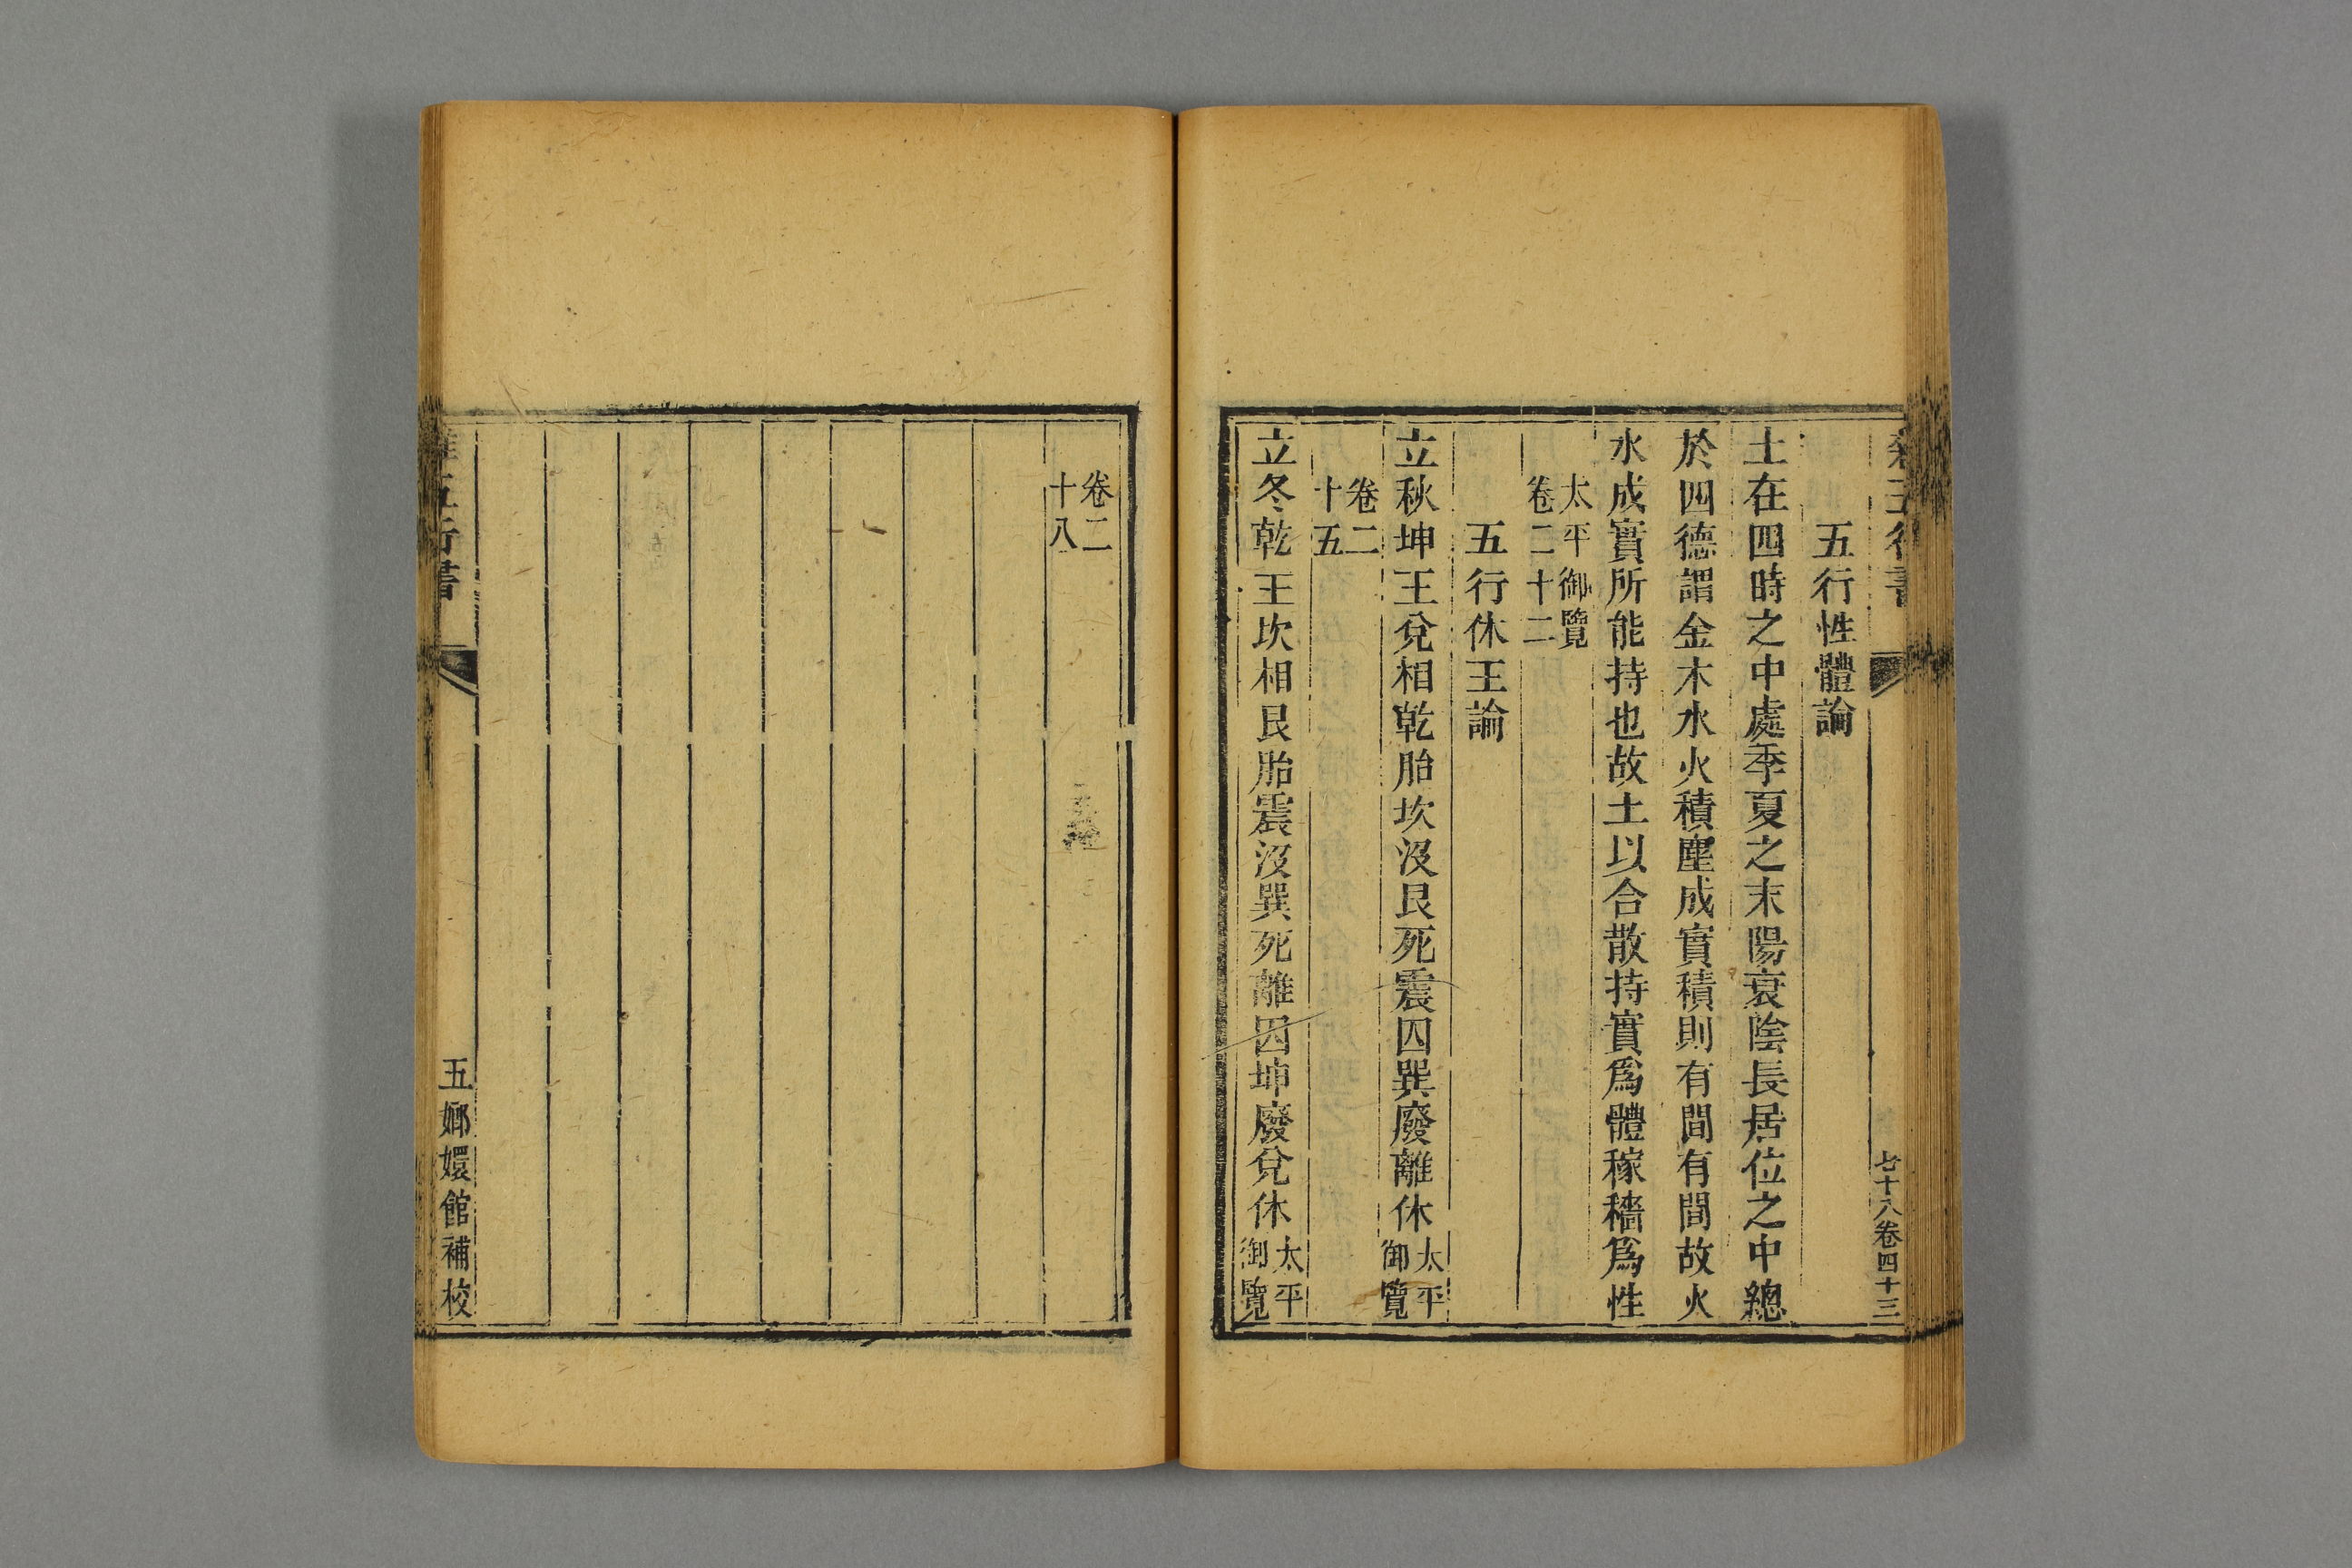 雜五行書
七十八卷四十三
五行性體論
土在四時之中處季夏之末陽衰陰長居位之中總
於四德謂金木水火積塵成實積則有間有間故火
水成實所能持也故土以合散持實爲體稼穡爲性
太平御覽
卷二十二
五行休王論
立秋坤王兌相乾胎坎沒艮死震囚巽廢離休
太平
御覽
卷二
十五
立冬乾王坎相艮胎震沒巽死離囚坤廢兌休
太平
御覽
卷二
十八
雜五行書
五
嫏嬛館補校